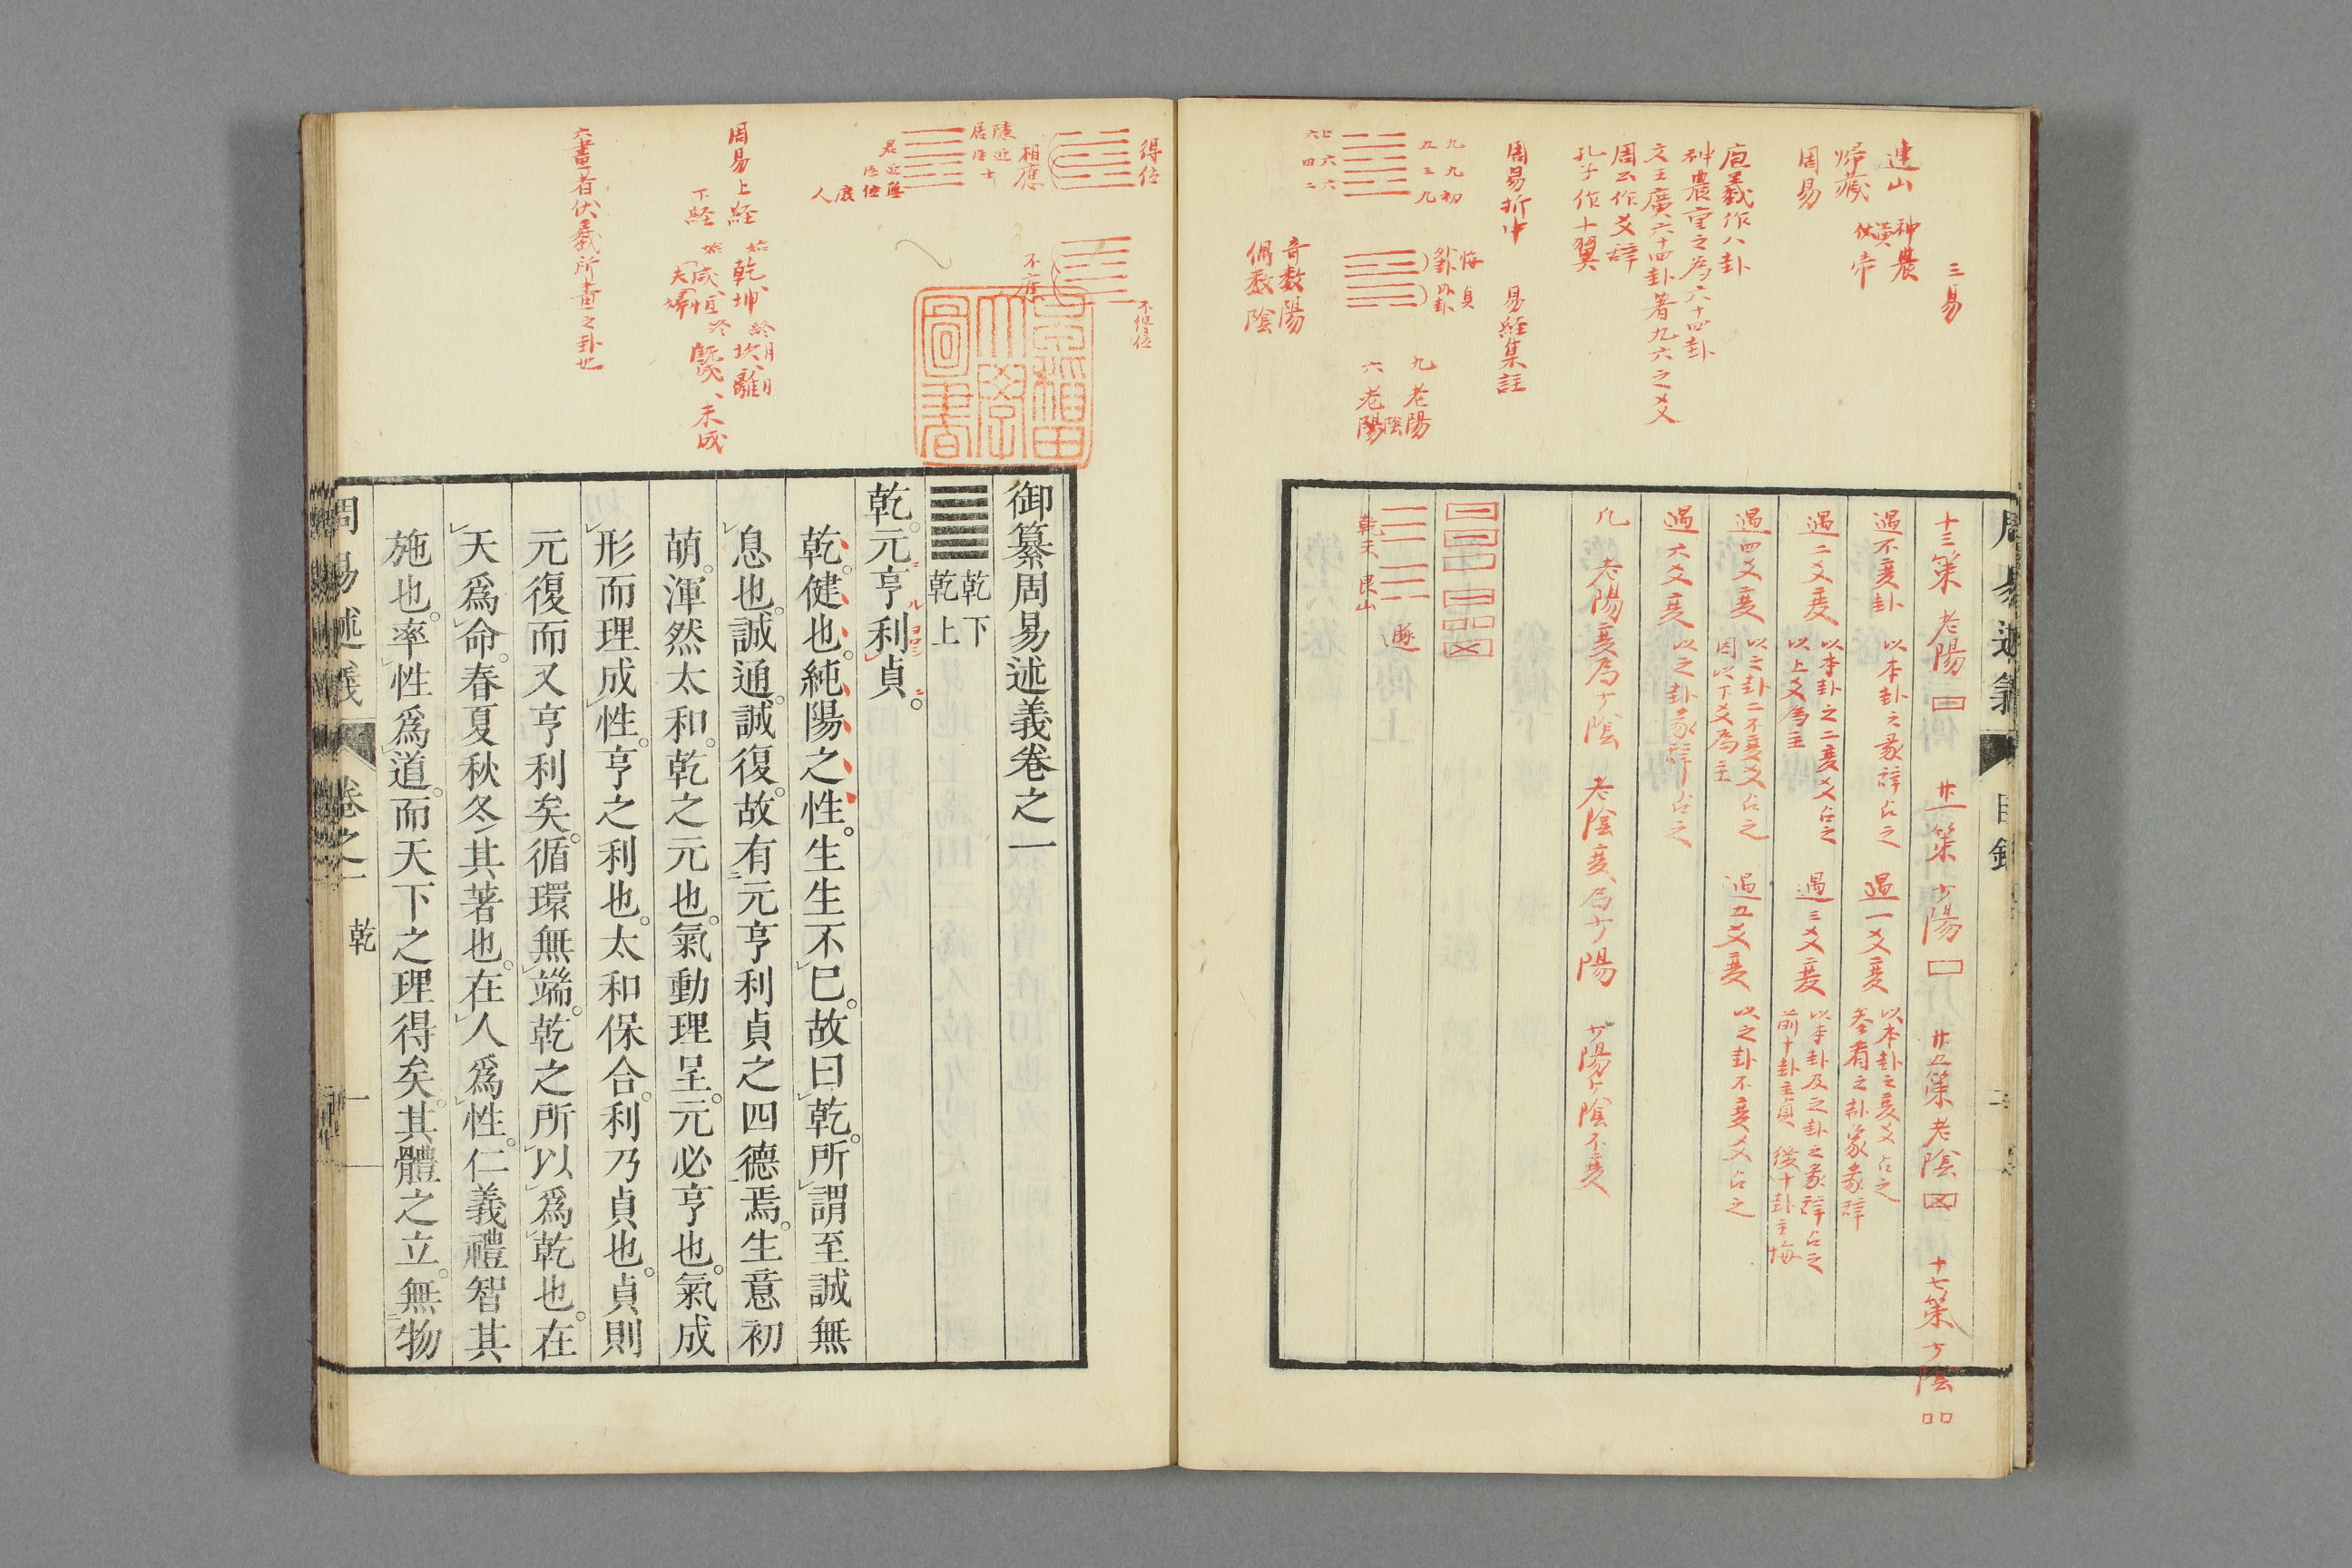 三易
連山 神農
歸藏 黃帝
周易
庖羲作八卦
神農重之為六十四卦
文王廣六十四卦著九六之爻
周公作爻辞
孔子作十翼
周易折中 易経集註
九 九 初
五 三 九
上 六 六
六 四 二
悔 貞
外卦 内卦
奇数陽
偶数陰
九 老陽
六 老陽陰
十三策 老陽 廿一策 少陽 廿五策 老陰 十七策 少陰
遇不変卦 以本卦之彖辞占之 遇一爻変 以本卦之変爻占之
参看之卦象彖辞
遇二爻変 以本卦之二変爻占之
以上爻為主
遇三爻変 以本卦及之卦之彖辞占之
前十卦主貞 後十卦主悔
遇四爻変 以之卦二不変爻占之
因以下爻為主
遇五爻変 以之卦不変爻占之
遇六爻変 以之卦彖辞占之
凡 老陽変為少陰 老陰変為少陽 少陽少陰不変
遯
乾天 艮山
得位
相應
不得位
不應
周易上経 始乾、坤 終坎、離
下経 始咸、恒 終既成、未成
夫婦
六畫者伏羲所畫之卦也
早稲田大學圖書
御纂周易述義卷之一
乾下
乾上
乾。元亨利貞。
ニ ル ヨロシ ニ
乾。健也。純陽之性。生生不已。故曰乾。所謂至誠無
息也。誠通。誠復。故有元亨利貞之四德焉。生意初
萌。渾然太和。乾之元也。氣動理呈。元必亨也。氣成
形而理成性。亨之利也。太和保合。利乃貞也。貞則
元復而又亨利矣。循環無端。乾之所以爲乾也。在
天爲命。春夏秋冬其著也。在人爲性。仁義禮智其
施也。率性爲道。而天下之理得矣。其體之立。無物
周易述義 卷之一 乾 一